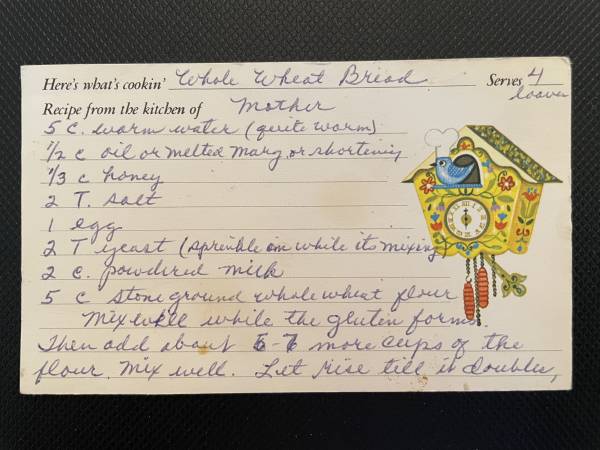 Here's what's cookin' Whole Wheat Bread Serves 4 loaves
Recipe from the kitchen of Mother
5 c. warm water (quite warm)
1/2 c oil or melted marg. or shortening
1/3 c honey
2 T. salt
1 egg
2 T yeast (sprinkle on while its mixing)
2 c. powdered milk
5 c stone ground whole wheat flour
Mix well while the gluten forms.
Then add about 6-7 more cups of the
flour. Mix well. Let rise till it doubles,